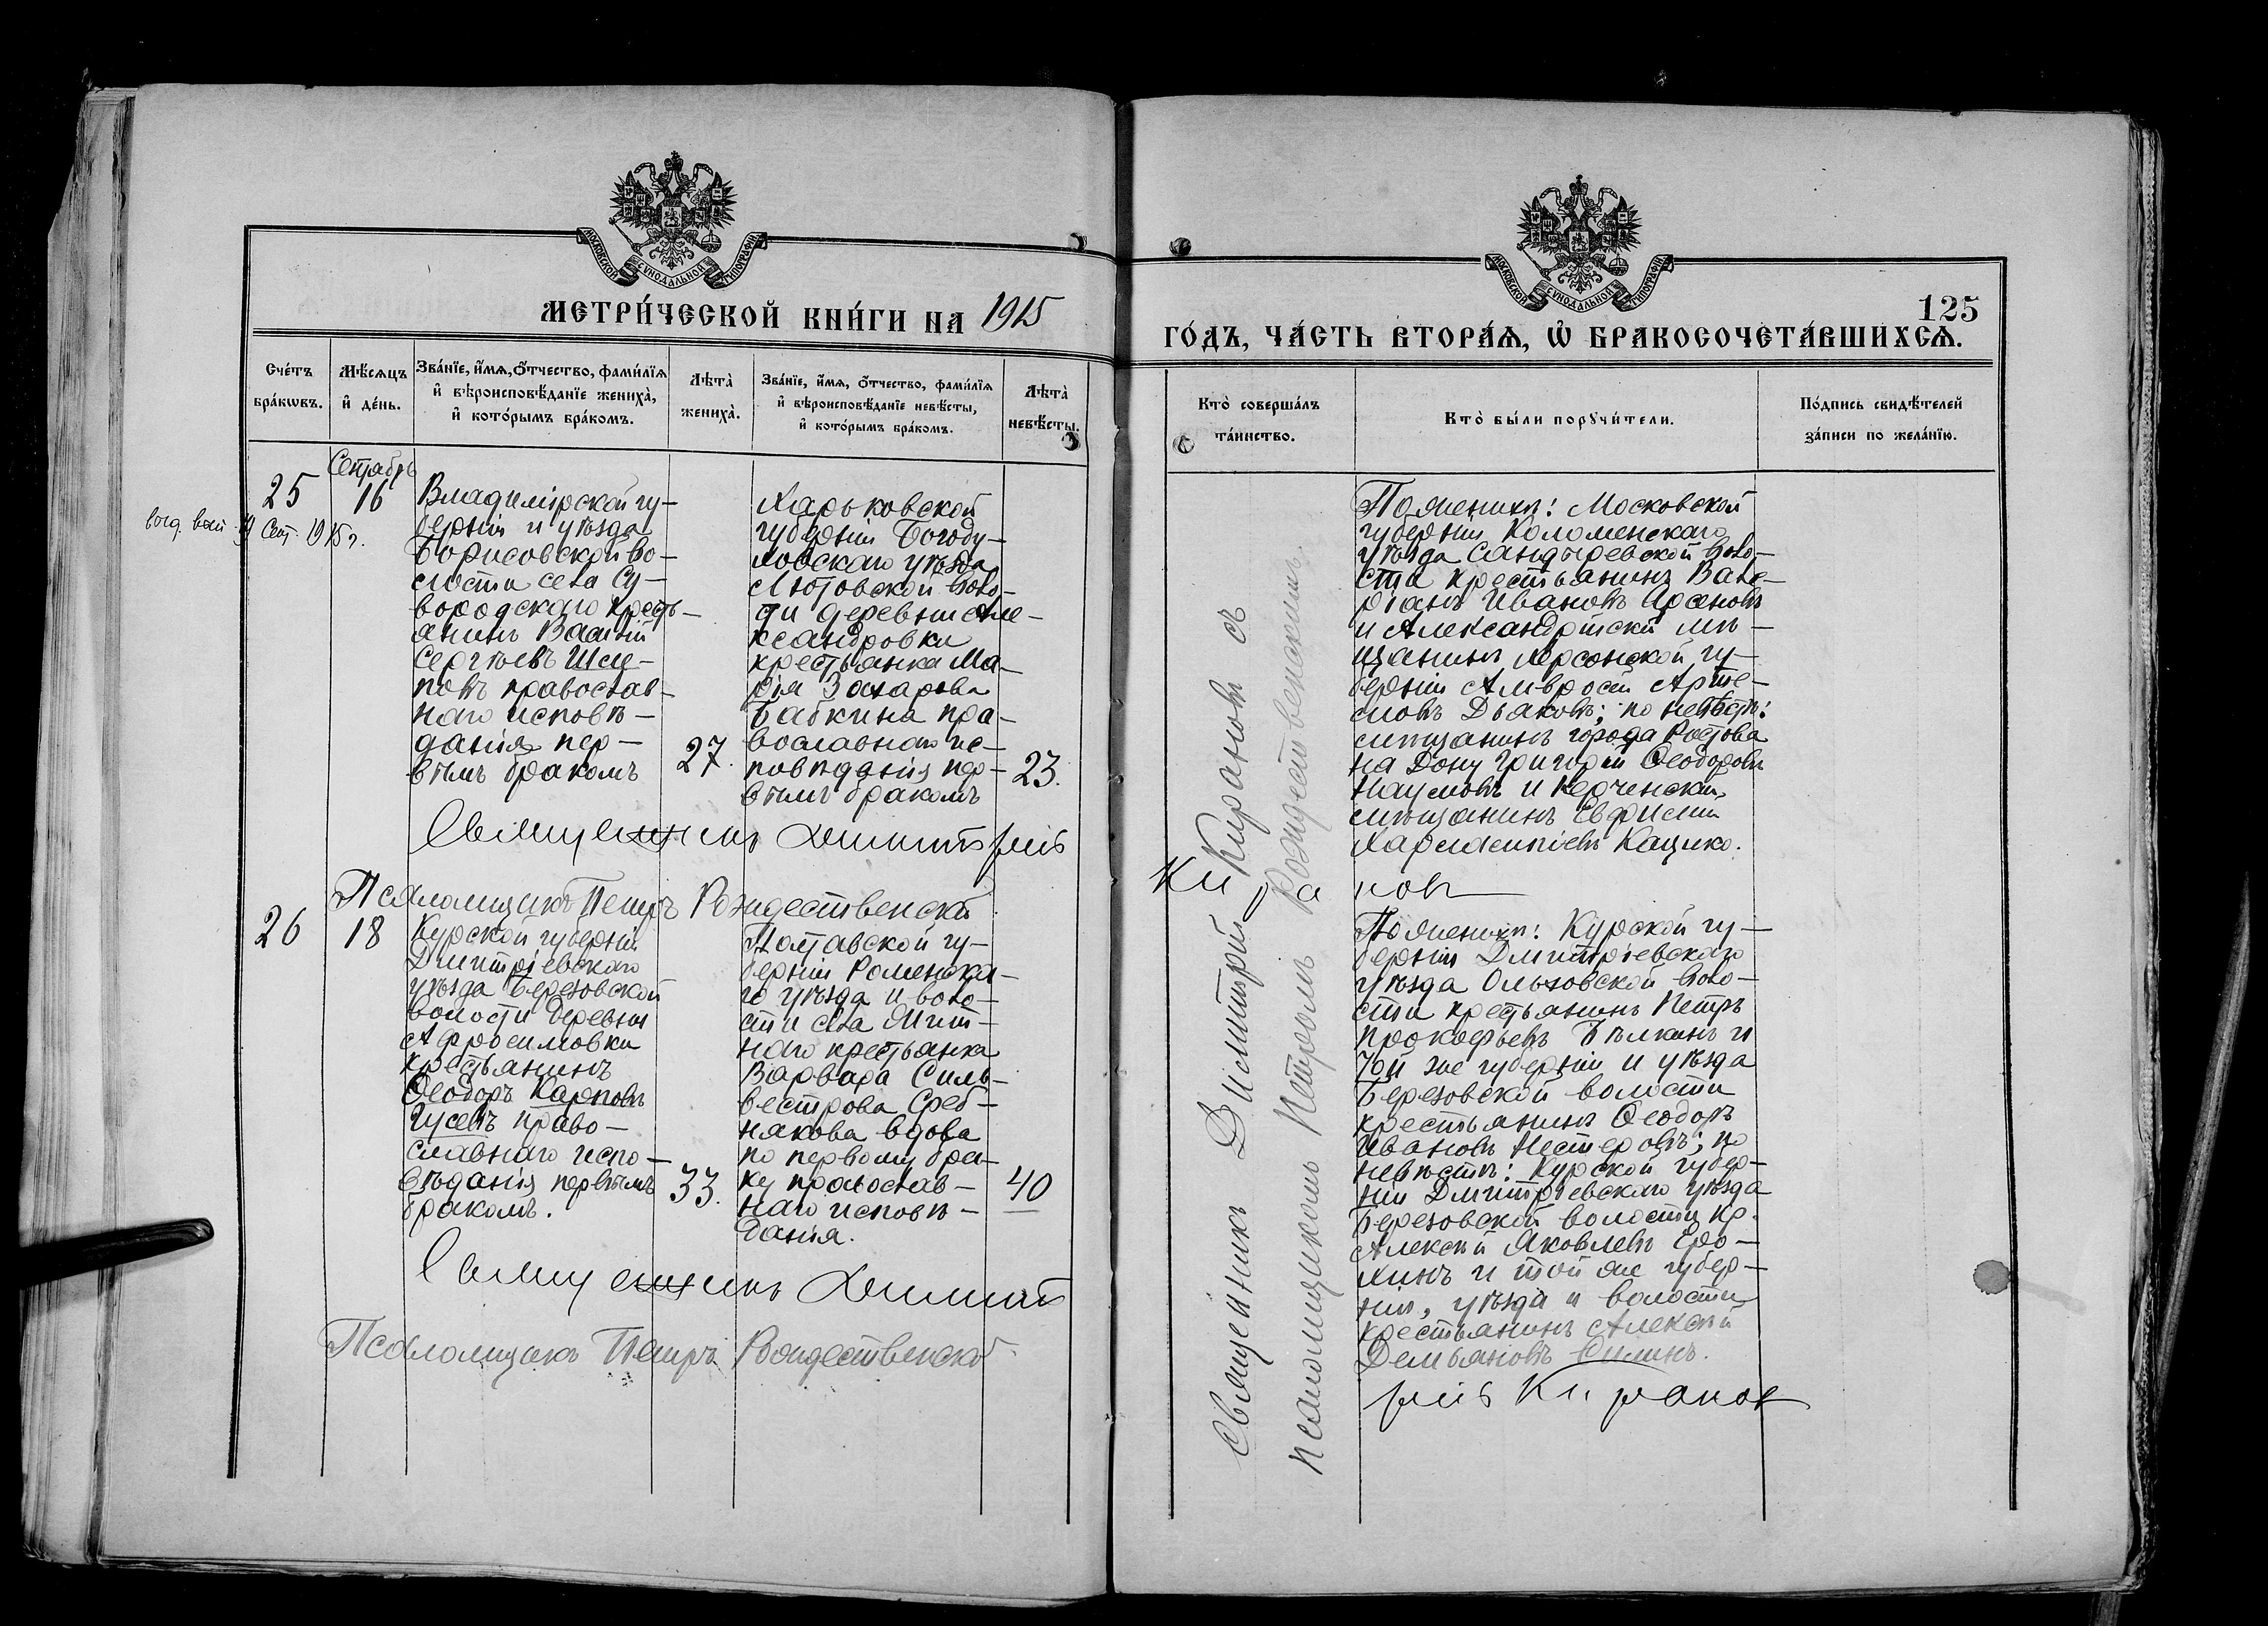 МОСКОВСКОЙ СУНОДАЛЬНОЙ ТИПОГРАФІИ
МЕТРИ́ЧЕСКОЙ КНИ́ГИ НА 1915
Сче́тъ бра́кѡвъ.
Мѣ́сяцъ и҆ де́нь.
Зва́нїе, и҆́мѧ, ѻ҆́тчество, фами́лїѧ и҆ вѣроисповѣ́данїе жениха̀, и҆ кото́рымъ бра́комъ.
Лѣ́та̀ жениха̀.
Зва́нїе, и҆́мѧ, ѻ҆́тчество, фами́лїѧ и҆ вѣроисповѣ́данїе невѣ́сты, и҆ кото́рымъ бра́комъ.
Лѣ́та̀ невѣ́сты.
Сентябрь
25
16
19 Сент. 1915 г.
Владимірской гу-
берніи и уѣзда
Борисовской во-
лости села Су-
вородскаго кресть-
янинъ Василій
Сергѣевъ
повъ православ-
наго исповѣ-
данія пер-
вымъ бракомъ
27.
Харьковской
губерніи Богоду-
ховскаго уѣзда
Лютовской воло-
сти деревни Але-
ксандровки
крестьянка Ма-
рія Захарова
Бабкина пра-
вославнаго ис-
повѣданія пер-
вымъ бракомъ
23.
Священникъ Димитрій
Псаломщикъ Петръ Рождественскій
26
18
Курской губерніи
Дмитріевскаго
уѣзда Березовской
волости деревни
Афросимовки
крестьянинъ
Ѳеодоръ Карповъ
Гусевъ право-
славнаго испо-
вѣданія первымъ
бракомъ.
33.
Полтавской гу-
берніи Роменска-
го уѣзда и воло-
сти села
наго крестьянка
Варвара Силь-
вестрова Среб-
някова вдова
по первому бра-
ку православ-
наго исповѣ-
данія.
40
Священникъ Димит
Псаломщикъ Петръ Рождественскій
МОСКОВСКОЙ СУНОДАЛЬНОЙ ТИПОГРАФІИ
125
ГО́ДЪ, ЧА́СТЬ ВТОРА́Ѧ, Ѡ҆ БРАКОСОЧЕТА́ВШИХСѦ.
Кто̀ соверша́лъ та́инство.
Кто̀ бы́ли порꙋчи́тели.
По́дпись свидѣ́телей за́писи по жела́нїю.
Священникъ Димитрій Кирановъ съ
псаломщикомъ Петромъ Рождественскимъ
По женихѣ: Московской
губерніи Коломенскаго
уѣзда Сандыревской воло-
сти крестьянинъ Вале-
ріанъ Ивановъ Арсеновъ
и Александрійскій мѣ-
щанинъ Херсонской гу-
берніи Амвросій Арте-
мовъ Дьяковъ; по невѣстѣ:
мѣщанинъ города Ростова
на Дону Григорій Ѳеодоровъ
Наумовъ и Керченскій
мѣщанинъ Евфимій
Харлампіевъ Кацико.
Кирановъ
По женихѣ: Курской гу-
берніи Дмитріевскаго
уѣзда Ольховской воло-
сти крестьянинъ Петръ
Прокофьевъ Бѣлкинъ и
той же губерніи и уѣзда
Березовской волости
крестьянинъ Ѳеодоръ
Ивановъ Нестеровъ; по
невѣстѣ: Курской губер-
ніи Дмитріевскаго уѣзда
Березовской волости кр.
Алексѣй Яковлевъ Еро-
хинъ и той же губер-
ніи, уѣзда и волости
крестьянинъ Алексѣй
Демьяновъ Силинъ.
рій Киранов